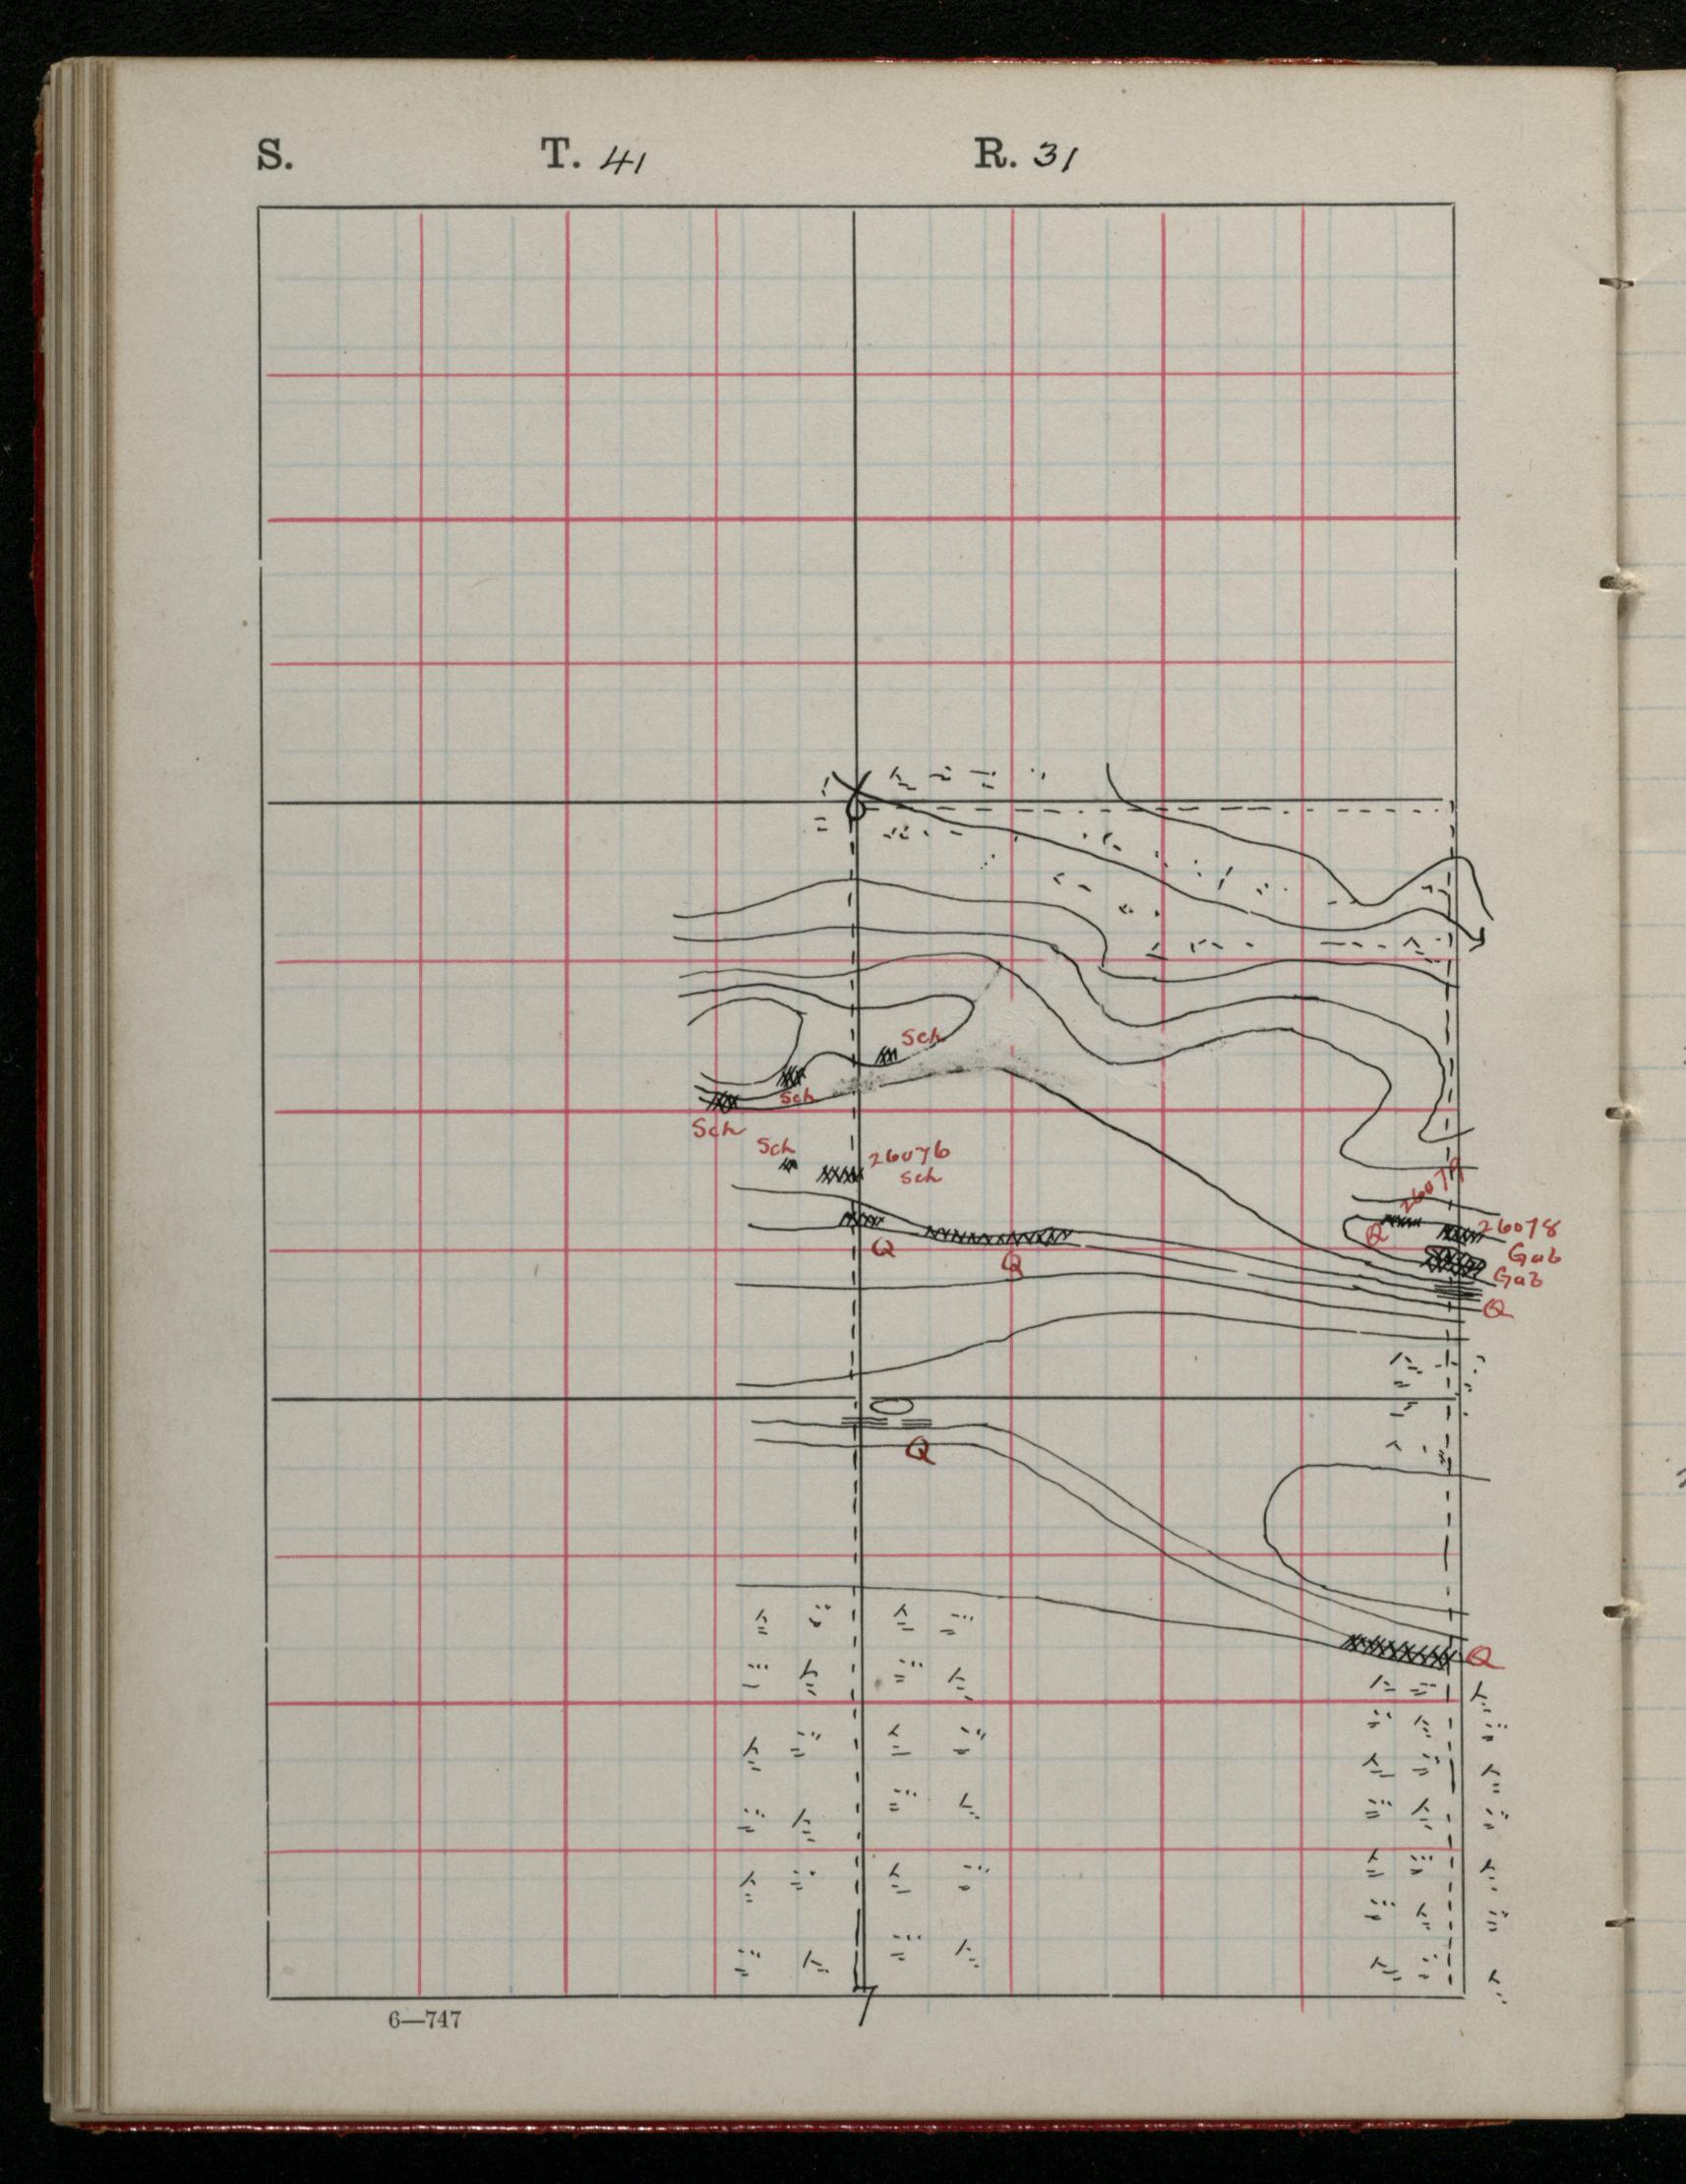 S. T. 41 R. 31
Sch
Sch
Sch
Sch
26076
Sch
Q
26078
Gab
Gab
Q
Q
Q
Q
Q
6—747